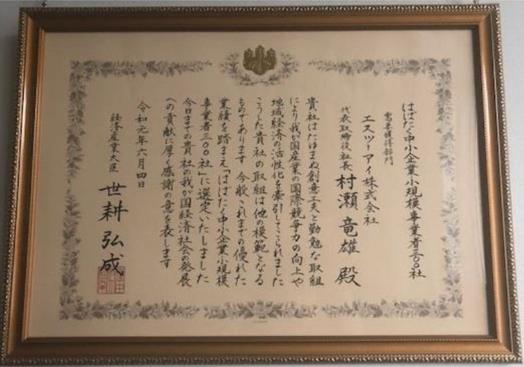 はばたく中小企業小規模事業者三〇〇社
需要獲得部門
エスツーアイ株式会社
代表取締役社長 村瀬 竜雄 殿
貴社はたゆまぬ創意工夫と勤勉な取組
により我が国産業の国際競争力の向上や
地域経済の活性化を牽引してこられました
こうした貴社の取組は他の模範となる
ものであります 今般これまでの優れた
業績を踏まえ「はばたく中小企業小規模
事業者三〇〇社」に選定いたしました
今日までの貴社の我が国経済社会の発展
への貢献に厚く感謝の意を表します
令和元年六月四日
経済産業大臣 世耕 弘成